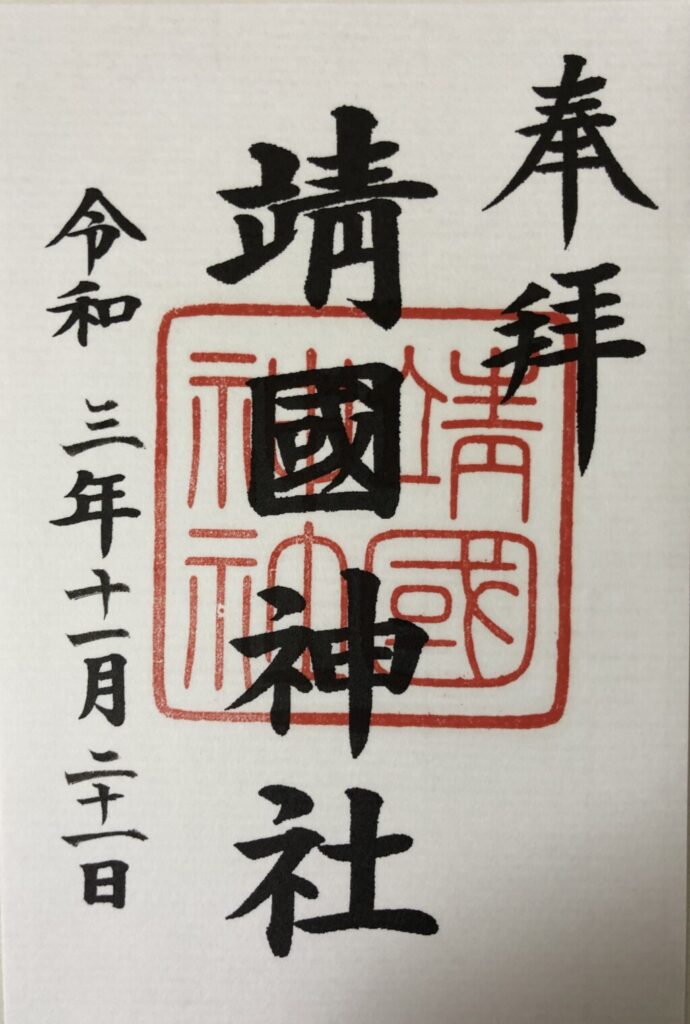 奉拝
靖國神社
令和 三年十一月二十一日
靖國
神社